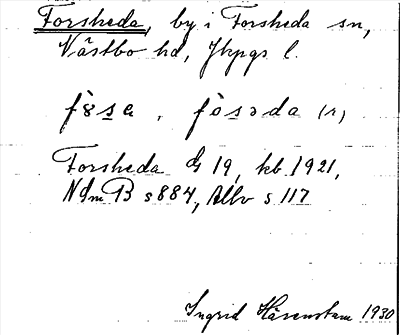 Forsheda, by i Forsheda sn,
Västbo hd, Jkpgs l.
fɵsa, fòsəda (r)
Forsheda G 19, kb 1921,
NSmB s 884, Allv s 117
Ingrid Härenstam 1930